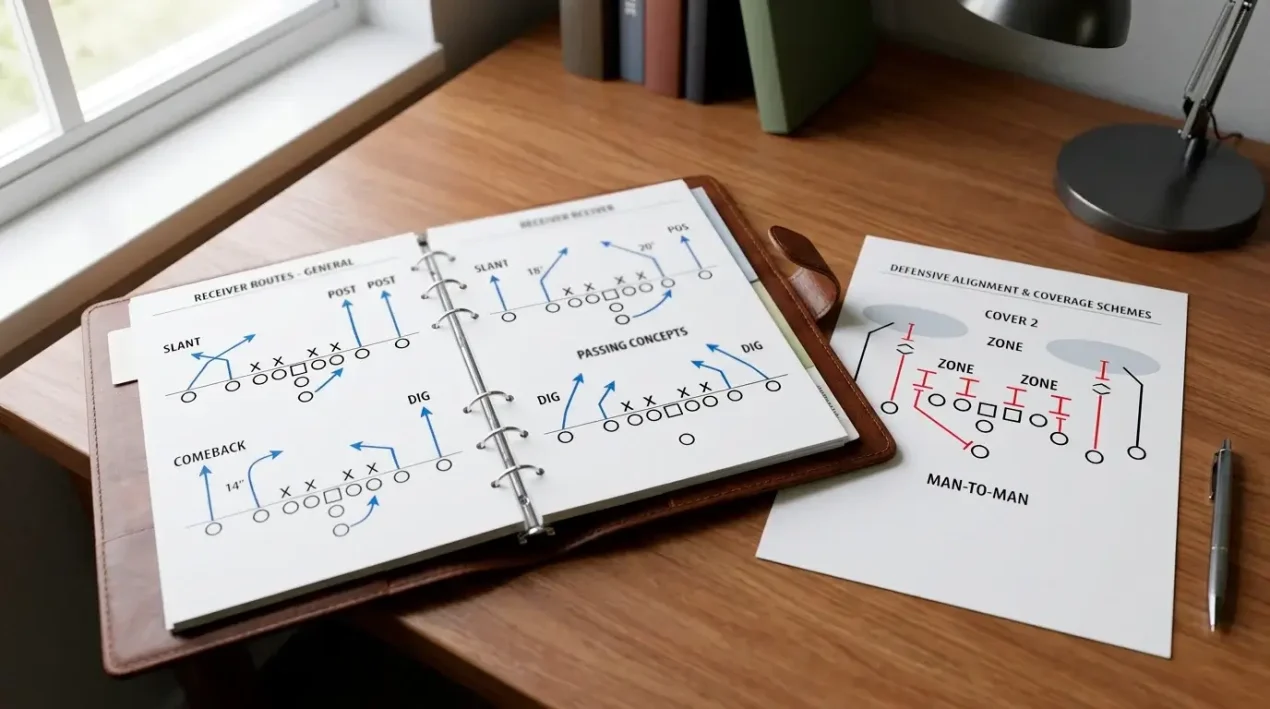 RECEIVER ROUTES - GENERAL
POST POST
SLANT
X X X X
COMEBACK
DIG
14"
X X X X
RECEIVER
SLANT
18"
20"
POS
X X X X
PASSING CONCEPTS
DIG
DIG
X X X X
DEFENSIVE ALIGNMENT & COVERAGE SCHEMES
COVER 2
ZONE
ZONE
ZONE
MAN-TO-MAN